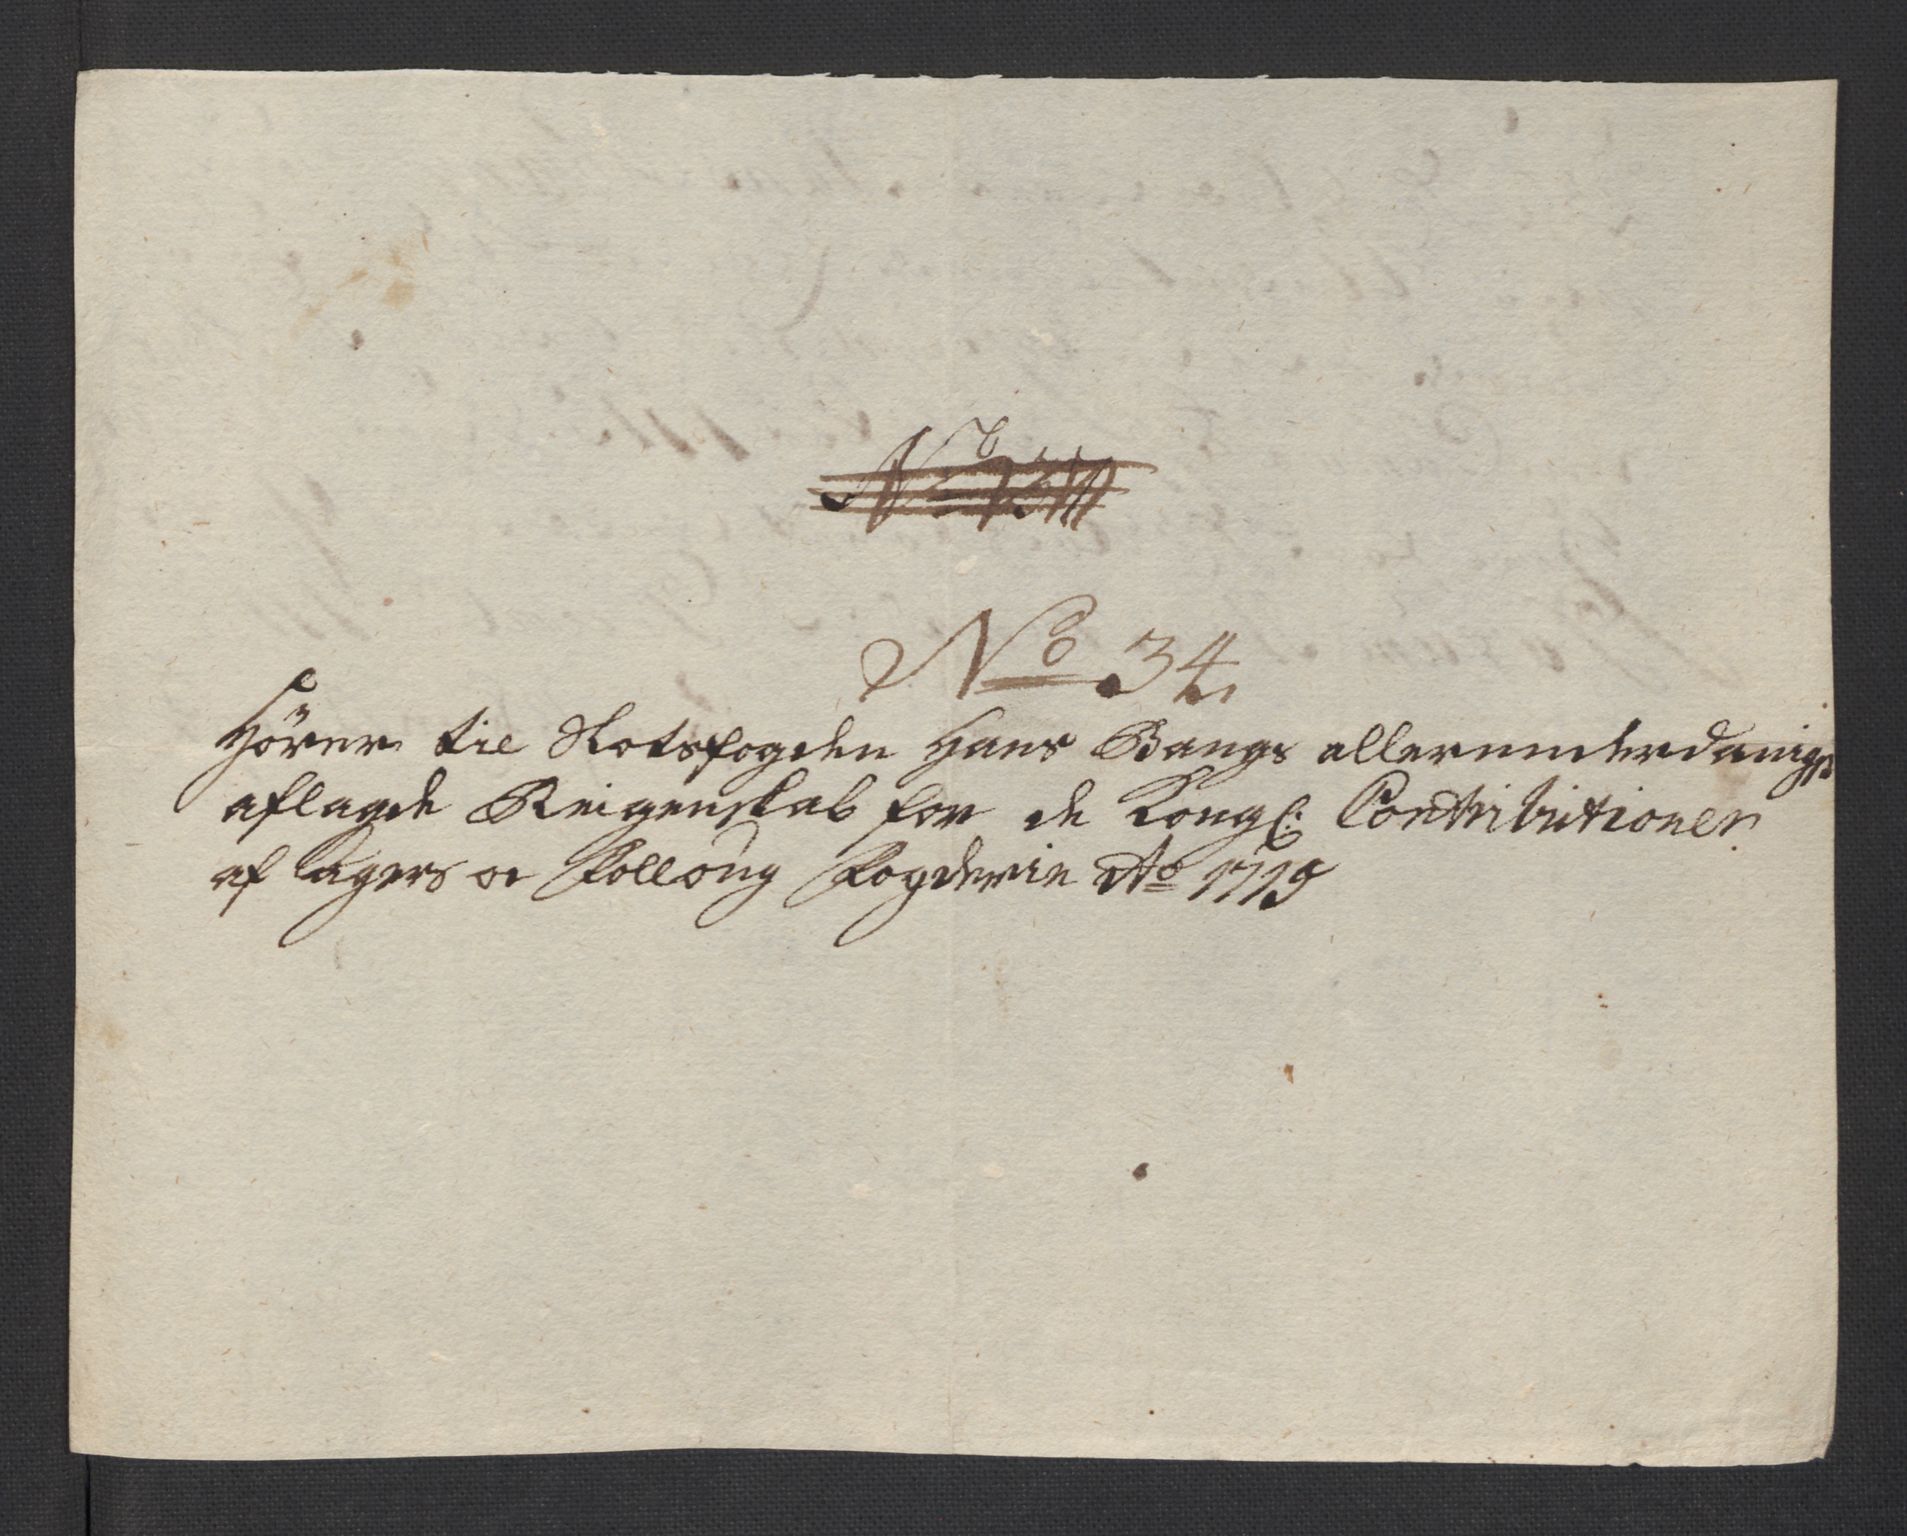 No 34
Hörer til Slotsfogden Hans Bangs allerunderdanigst
aflagde Reigenskab for de Kongl: Contributioner
af Agers oc Folloug Fogderie Ao 1715